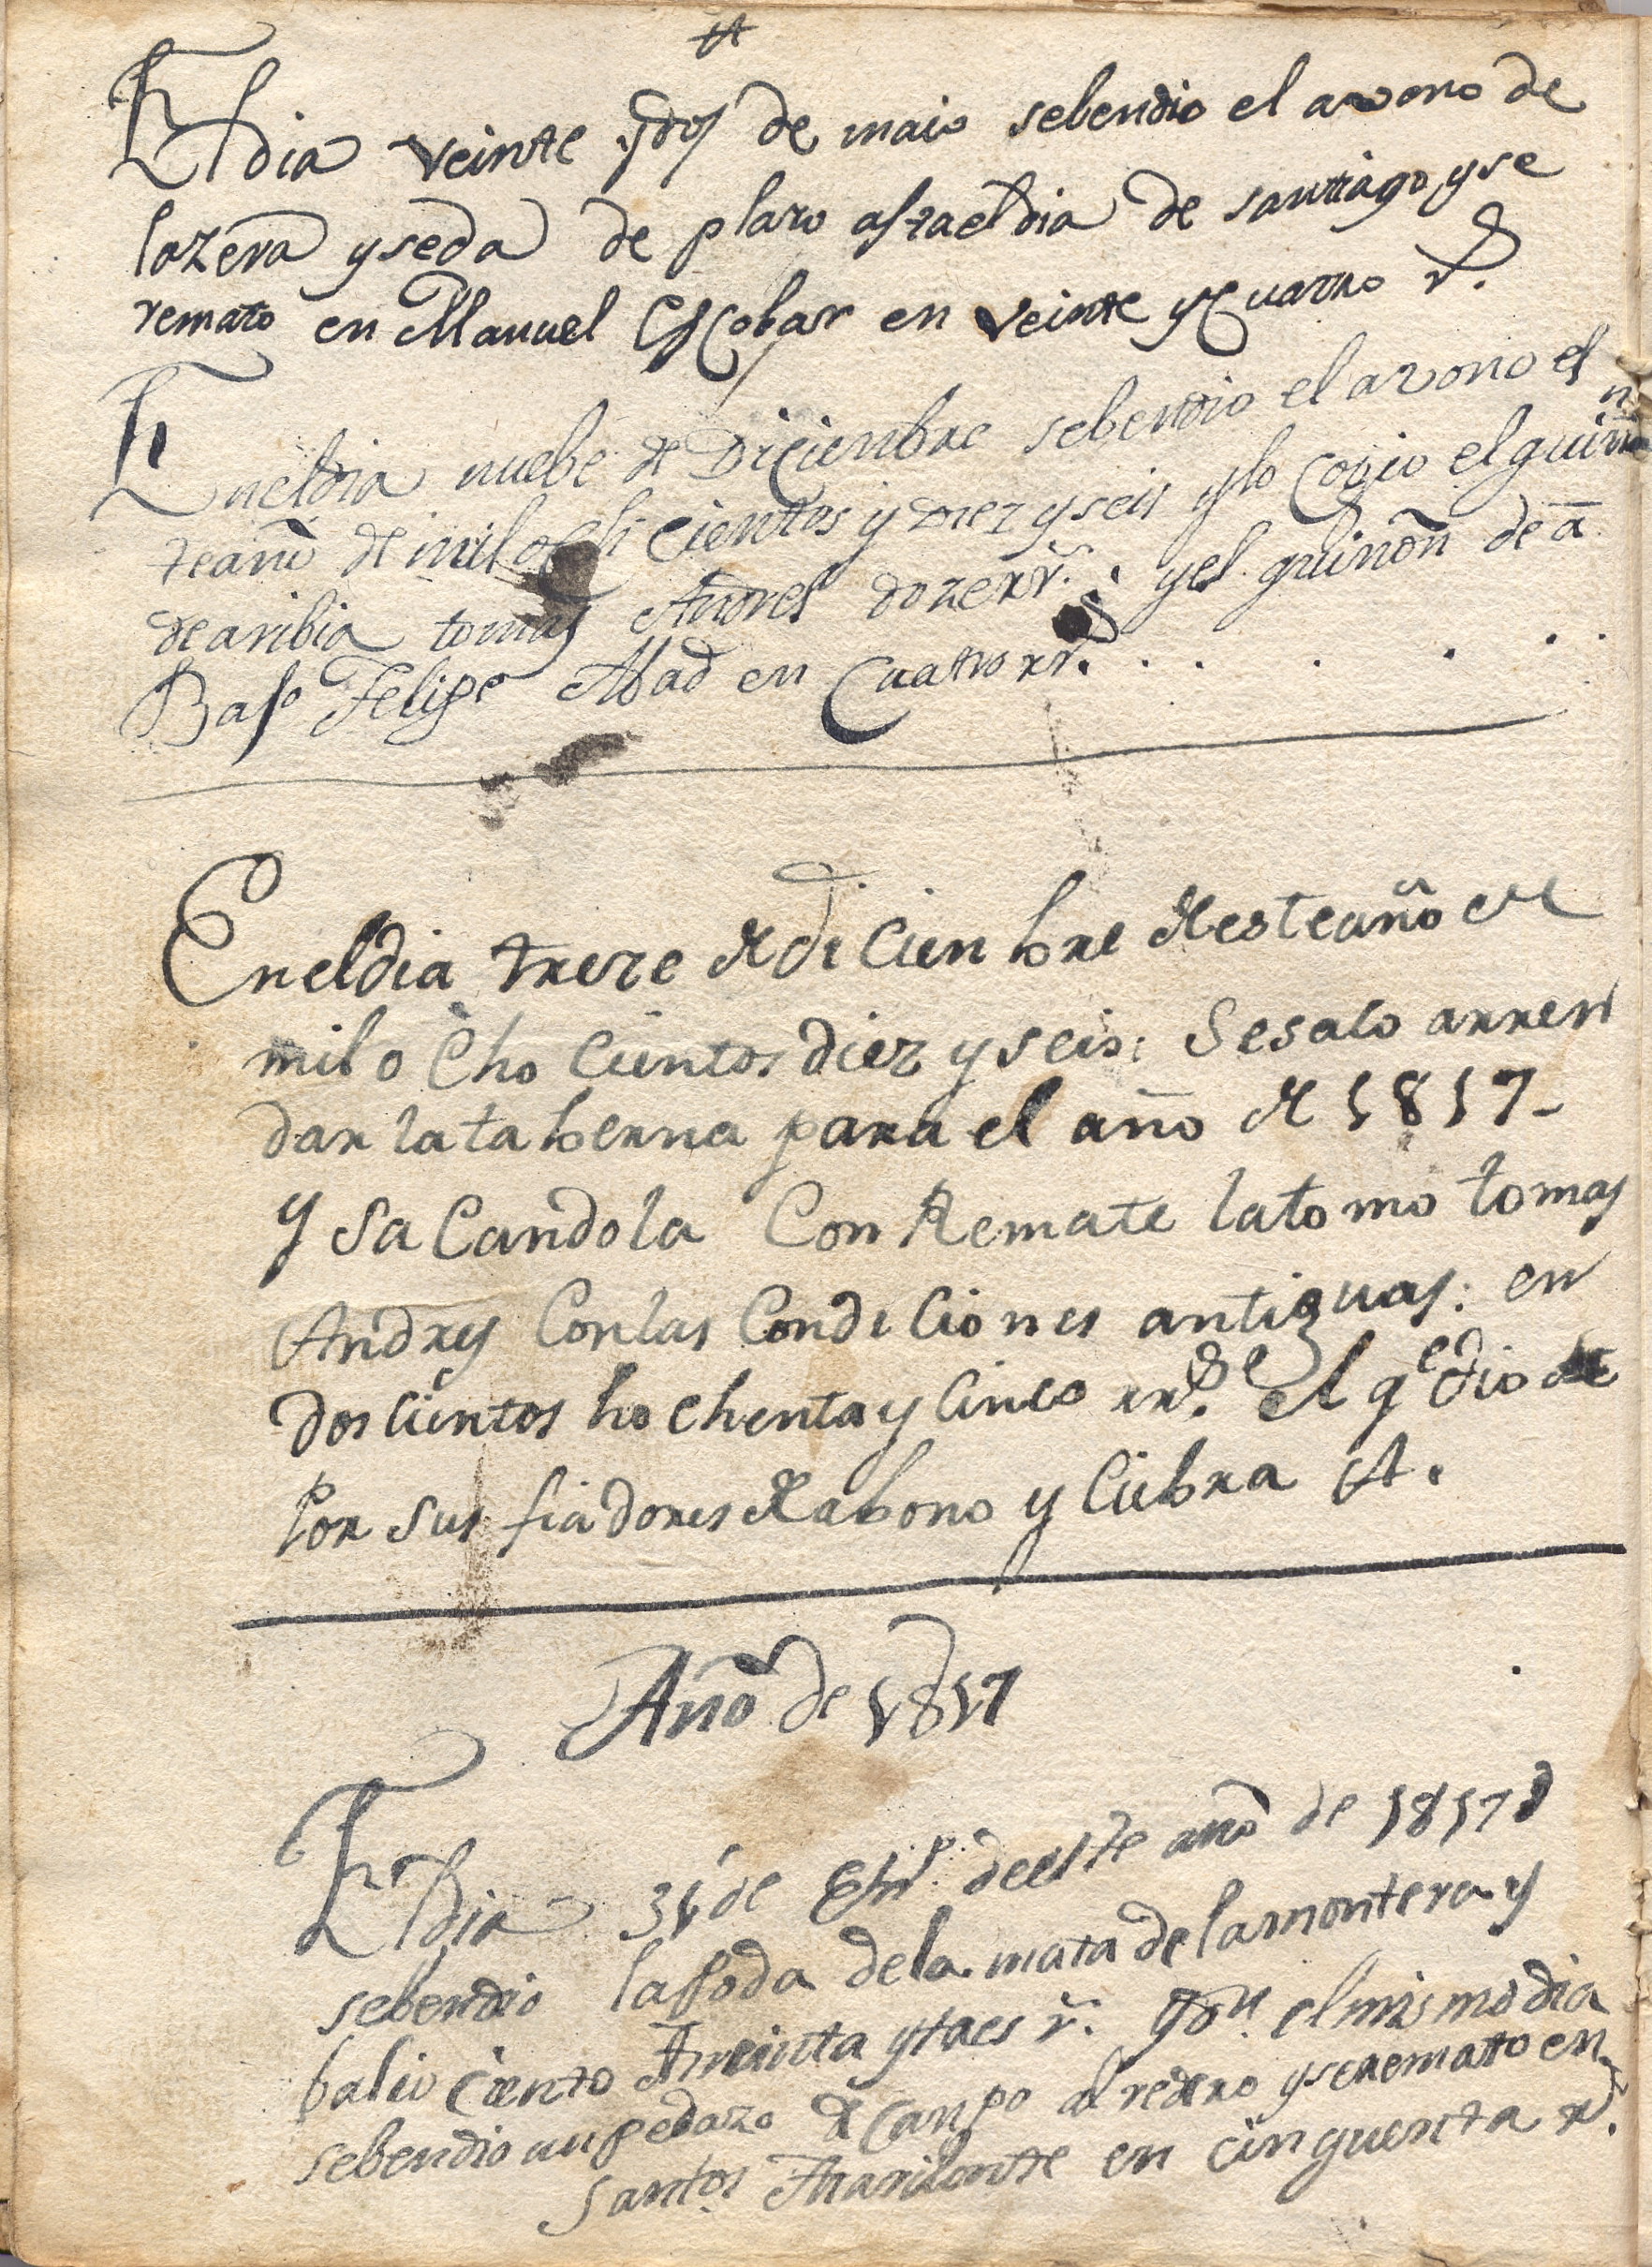 El dia veinte ydos de maio sebendio el avono de
lazera yseda de plazo astaeldia de santiago yse
remato en Manuel Escobar en veinte yCuatro rs.
Eneldia nuebe de Diciembre sebendio el avono es
teaño de mil ochicientos y diez yseis ylo Cogio elguiñon
dearibia tomas Andres dozerrs. yel guiñon de a
Bajo Felipe Abad en Cuatro rrs.
Eneldia treze de diCienbre de esteaño de
mil oChoCientos diez yseis: Sesaco arren
dar lataberna para el año de 1817-
y SaCandola Con Remate latomo tomas
Andres Conlas CondiCiones antiguas: en
dosCientos hochentay Cinco rrs. el qe dio de
Por sus fiadores de abono y Ciebra A.
Año de 1817
El dia 31 de En.º deeste año de 1817
sebendio lapoda dela mata delamontera y
balio ciento treinta ytres rs. elmismo dia
sebendio un pedazo de Canpo al redero yseremato en
Santos en cinquenta rs.